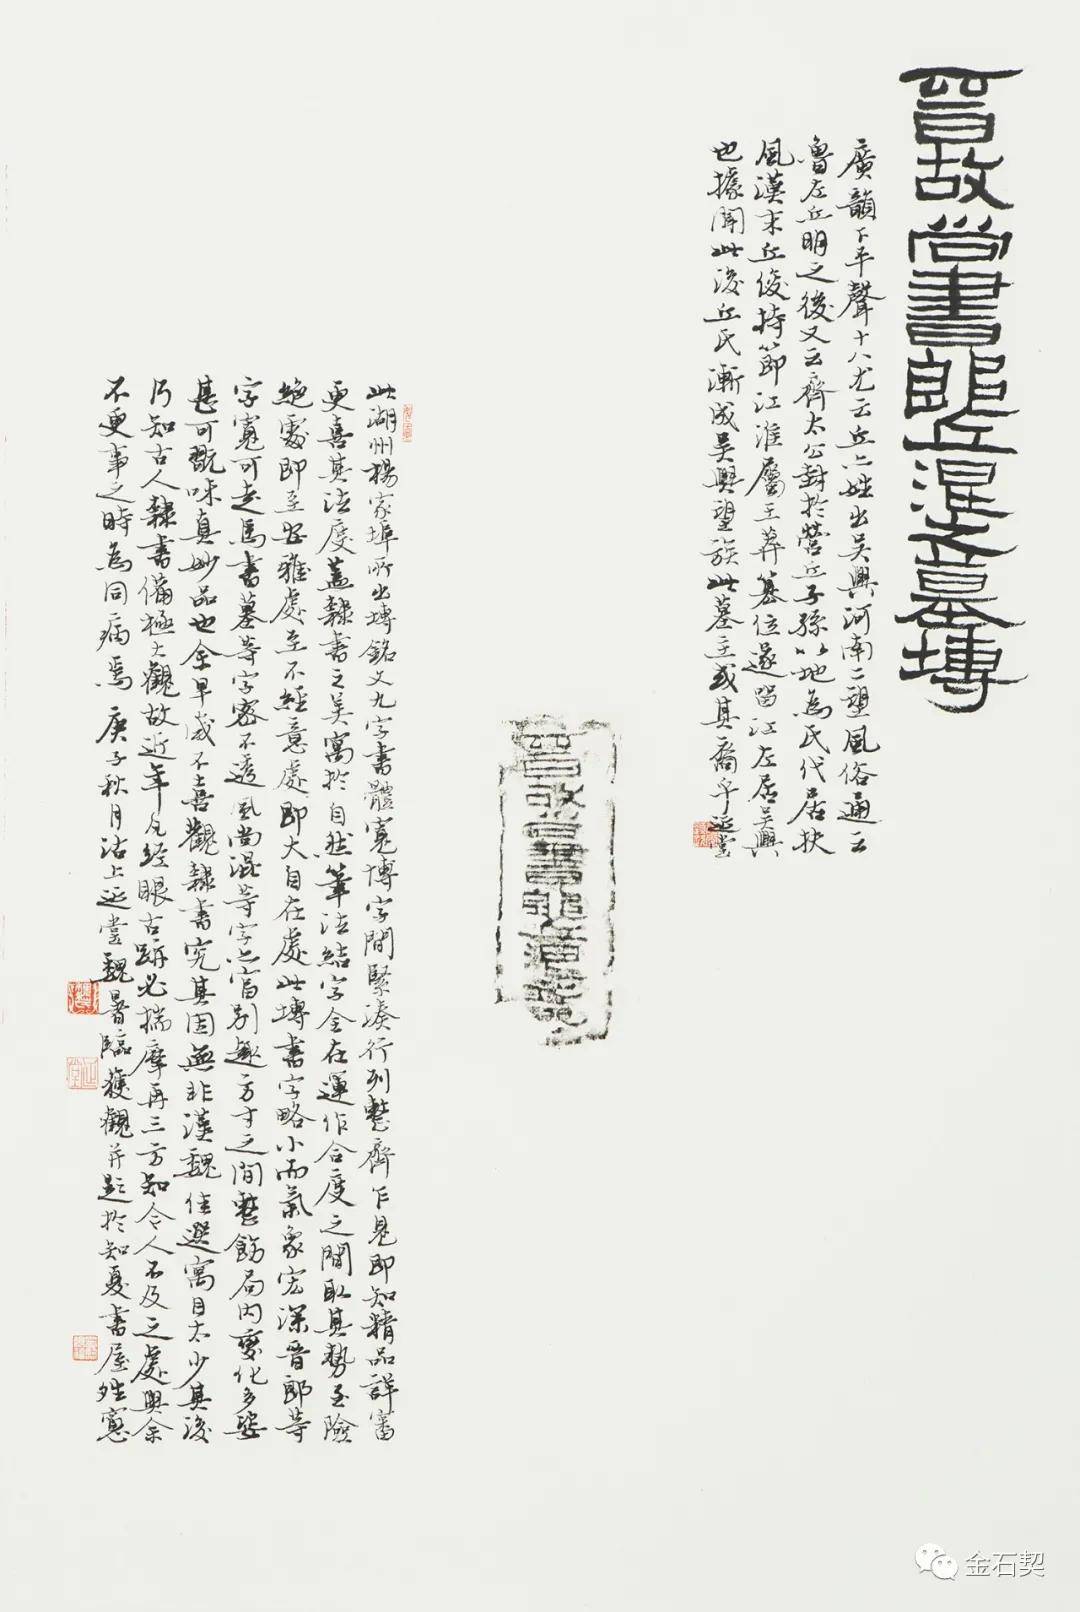 晉故尚書郎丘混之墓塼
廣韻下平聲十八尤云丘亦姓出吳興河南二望風俗通云
魯左丘明之後又云齊太公封於營丘子孫以地為氏代居扶
風漢末丘俊持節江淮屬王莽篡位遂留江左居吳興
也據聞此後丘氏漸成吳興望族此墓主或其裔乎延堂
晉故尚書郎
此湖州楊家埠所出塼銘文九字書體寬博字間緊湊行列整齊乍見即知精品詳審
更喜其法度蓋隸書之美寓於自然筆法結字全在運作合度之間取其勢至險
絕處即至安雅處至不經意處即大自在處此塼書字略小而氣象宏深晉郎等
字寬可走馬書墓等字密不透風尚混等字亦富別趣方寸之間整飭局內變化多姿
甚可翫味真妙品也余早歲不喜觀隸書究其因無非漢魏佳選寓目太少其後
乃知古人隸書備極大觀故近年凡經眼古跡必揣摩再三方知今人不及之處與余
不更事之時為同病焉 庚子秋月沽上延堂魏暑臨獲觀并題於知憂書屋雙寬
金石契